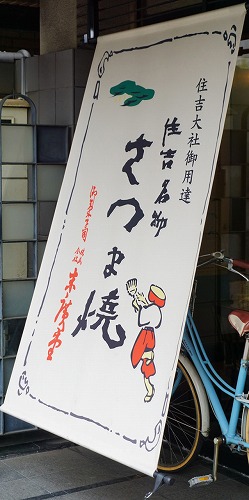 住吉大社御用達
住吉名物
さつま焼
御菓子司 末廣堂